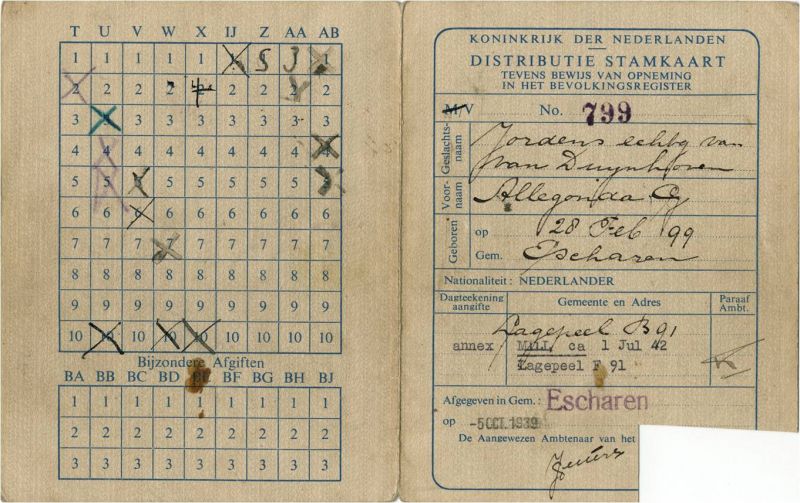 T U V W X IJ Z AA AB
1 1 1 1 1 1 5 3 1
2 2 2 2 2 2 2 2 2
3 3 3 3 3 3 3 3 3
4 4 4 4 4 4 4 4 4
5 5 5 5 5 5 5 5 5
6 6 6 6 6 6 6 6 6
7 7 7 7 7 7 7 7 7
8 8 8 8 8 8 8 8 8
9 9 9 9 9 9 9 9 9
10 10 10 10 10 10 10 10 10
Bijzondere Afgiften
BA BB BC BD BE BF BG BH BJ
1 1 1 1 1 1 1 1 1
2 2 2 2 2 2 2 2 2
3 3 3 3 3 3 3 3 3
KONINKRIJK DER NEDERLANDEN
DISTRIBUTIE STAMKAART
TEVENS BEWIJS VAN OPNEMING
IN HET BEVOLKINGSREGISTER
M/V No. 799
Geslachtsnaam
Jordens echtg van
van Duynhoven
Voornaam
Allegonda
Geboren op 28 Feb 99
Gem. Escharen
Nationaliteit: NEDERLANDER
Dagteekening aangifte
Gemeente en Adres
Paraaf Ambt.
Lagepeel B 91
annex Mill, ca 1 Jul 42
Lagepeel F 91
Afgegeven in Gem.: Escharen
op -5 OCT. 1939
De Aangewezen Ambtenaar van het